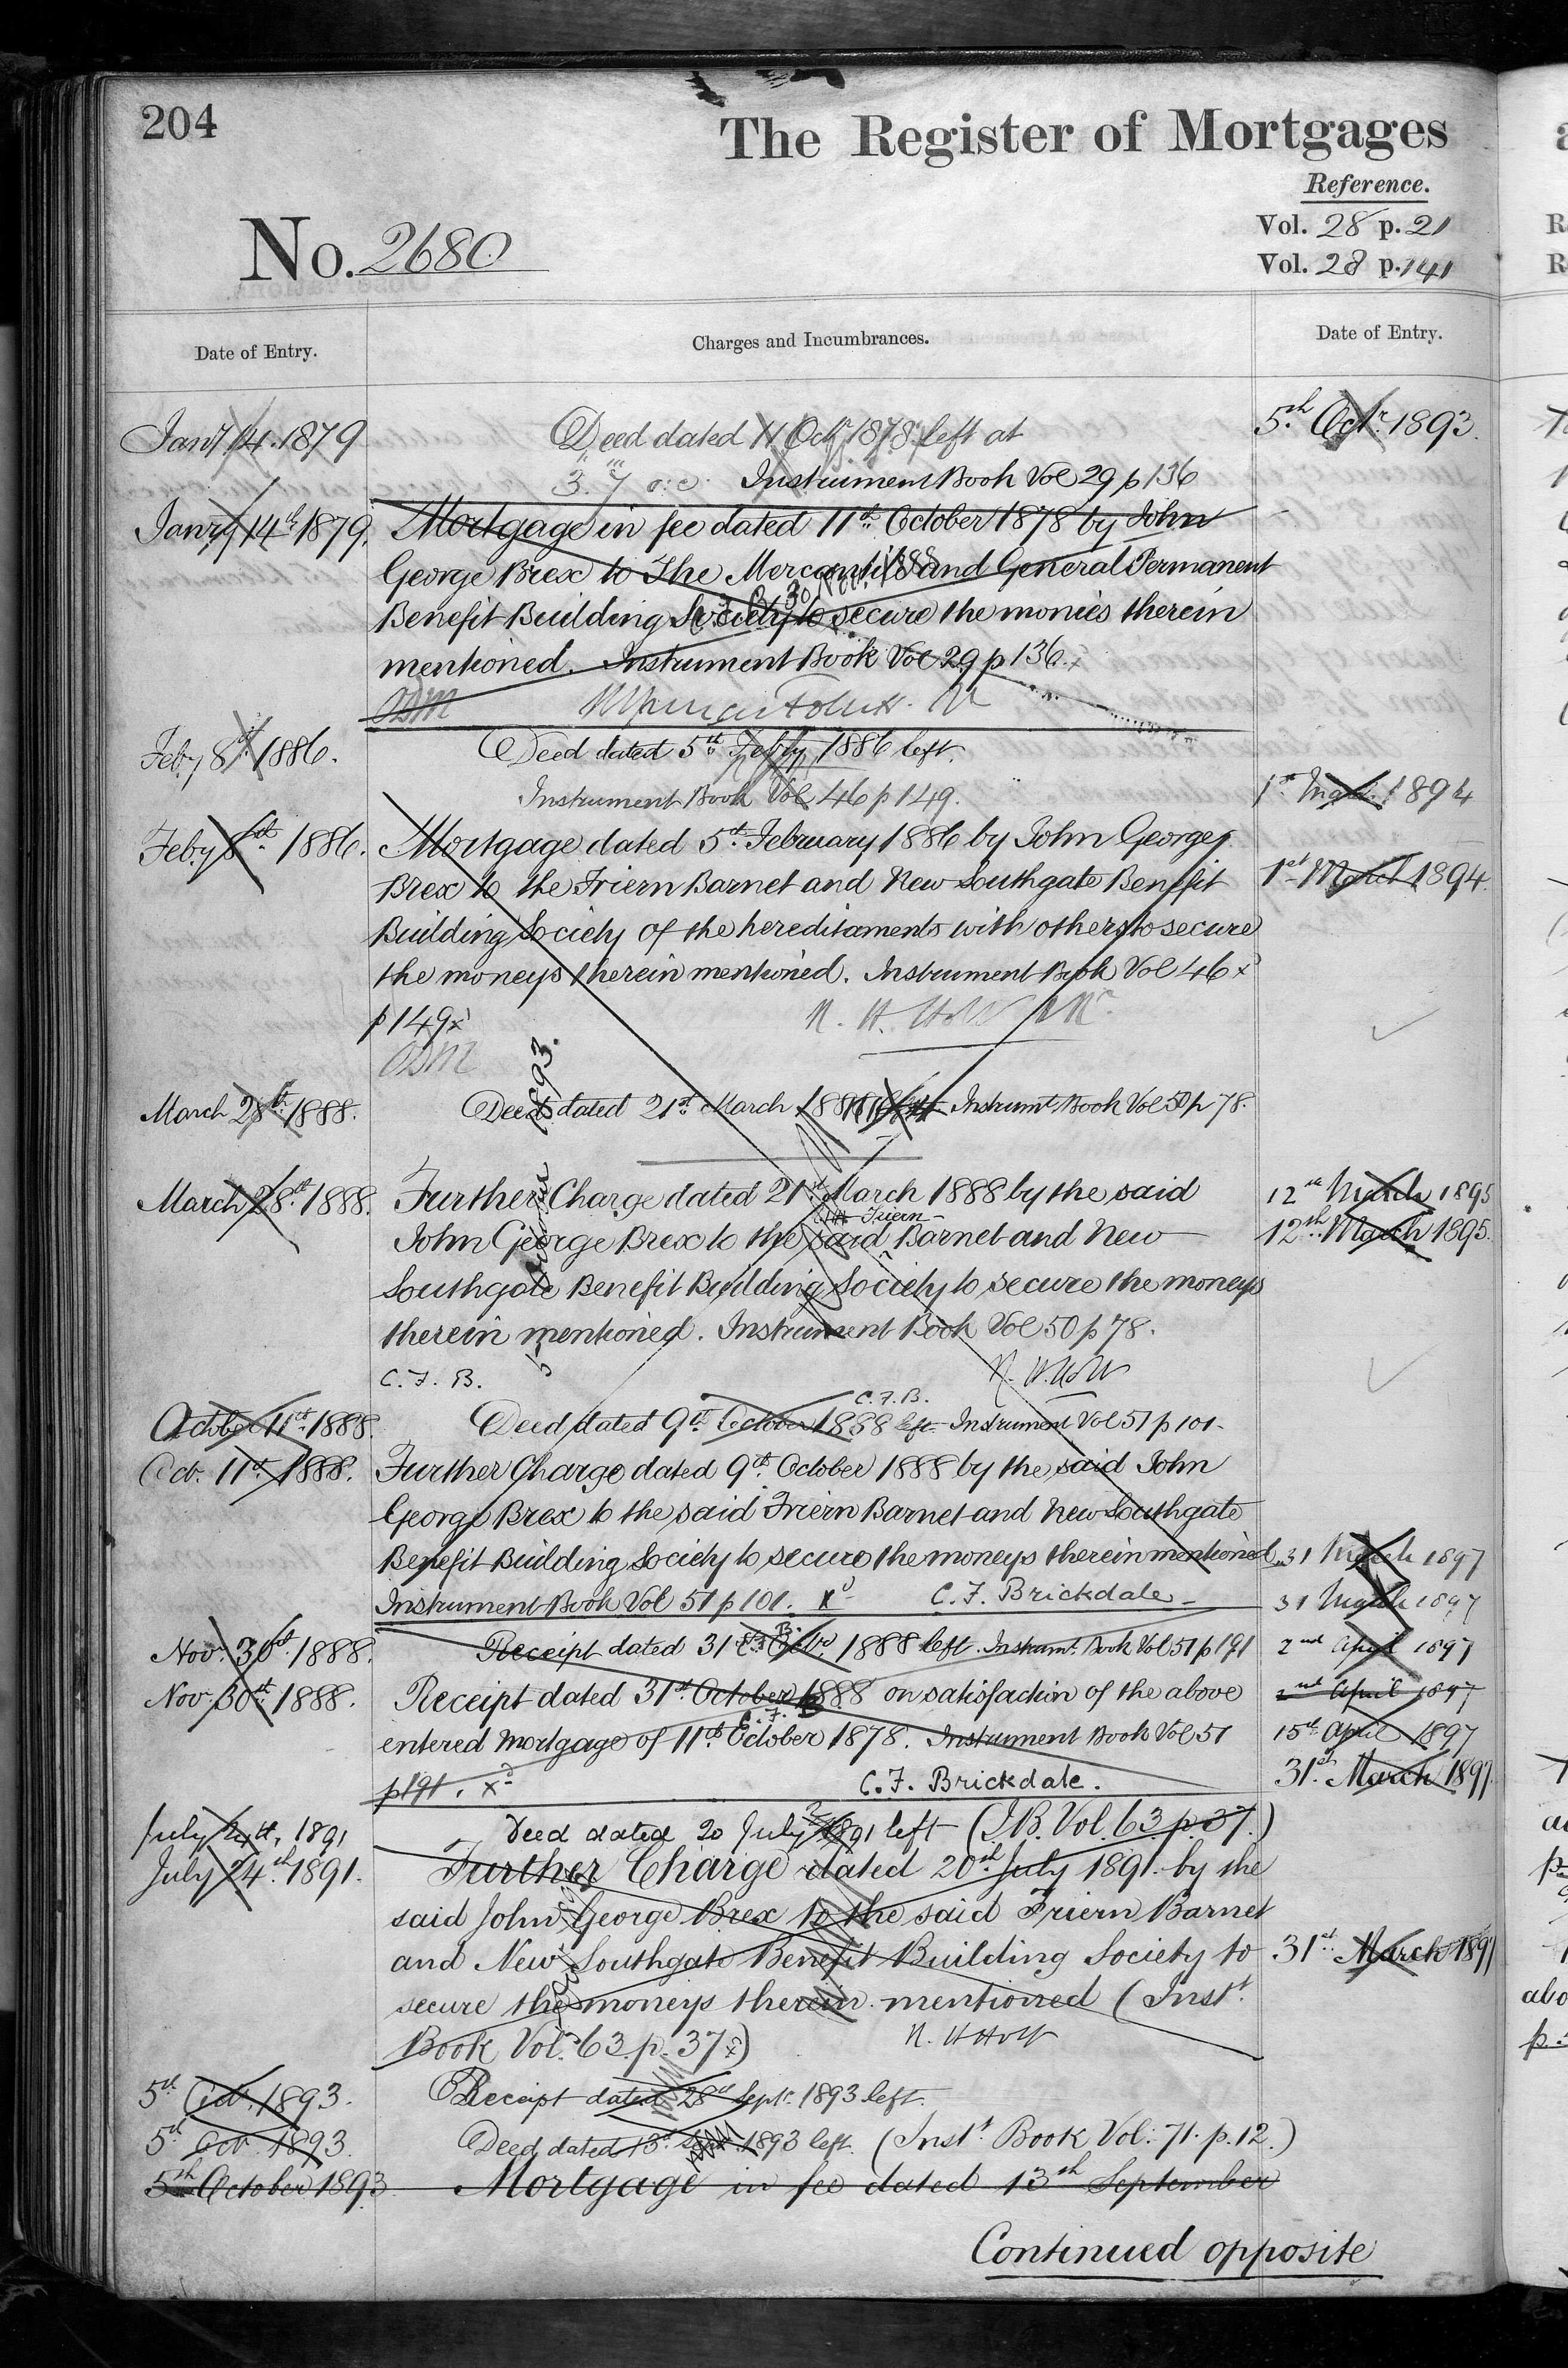 204
The Register of Mortgages
Reference.
No. 2680
Vol. 28 p. 21
Vol. 28 p. 141
Date of Entry.
Charges and Incumbrances.
Date of Entry.
Jany 14. 1879
Deed dated 11 Octr 1878 left at
3. 7 o:c. Instrument Book Vol 29 p 136
Jany 14th 1879.
Mortgage in fee dated 11th October 1878 by John
George Brex to The Mercantile and General Permanent
Benefit Building Society to secure the monies therein
mentioned. Instrument Book Vol 29 p 136 x
Feby 8th 1886.
Deed dated 5th Feby 1886 left.
Instrument Book Vol 46 p 149.
Feby 8th 1886.
Mortgage dated 5th February 1886 by John George
Brex to the Friern Barnet and New Southgate Benefit
Building Society of the hereditaments with others to secure
the moneys therein mentioned. Instrument Book Vol 46 x
p 149 x
March 28th 1888.
Deed dated 21st March 1888 left Instrumt Book Vol 50 p 78.
March 28th 1888.
Further Charge dated 21st March 1888 by the said
Friern
John George Brex to the said Barnet and New
Southgate Benefit Building Society to secure the moneys
therein mentioned. Instrument Book Vol 50 p 78.
C. F. B.
C. F. B.
October 11th 1888.
Deed dated 9th October 1888 left Instrument Vol 51 p 101.
Oct. 11th 1888.
Further Charge dated 9th October 1888 by the said John
George Brex to the said Friern Barnet and New Southgate
Benefit Building Society to secure the moneys therein mentioned
Instrument Book Vol 51 p 101. xd C. F. Brickdale
Nov. 30th 1888.
Receipt dated 31st Octr 1888 left. Instrumt. Book Vol 51 p 191
Nov. 30th 1888.
Receipt dated 31st October 1888 on satisfaction of the above
C. F. B.
entered Mortgage of 11th October 1878. Instrument Book Vol 51
p 191. xd C. F. Brickdale.
July 24th, 1891
Deed dated 20 July 1891 left (I.B. Vol. 63 p. 37.)
July 24th 1891.
Further Charge dated 20th July 1891 by the
said John George Brex to the said Friern Barnet
and New Southgate Benefit Building Society to
secure the moneys therein mentioned (Inst.
Book Vol. 63. p. 37 x)
5th Oct. 1893.
Receipt dated 28th Septr. 1893 left.
5th Oct. 1893.
Deed dated 13th Septr 1893 left. (Inst. Book Vol. 71. p. 12.)
5th October 1893
Mortgage in fee dated 13th September
Continued opposite
5th Octr. 1893.
1st March 1894
1st March 1894.
12th March 1895
12th March 1895.
31 March 1897
31 March 1897
2nd April 1897
2nd April 1897
15th April 1897
31st March 1897
31st March 1897